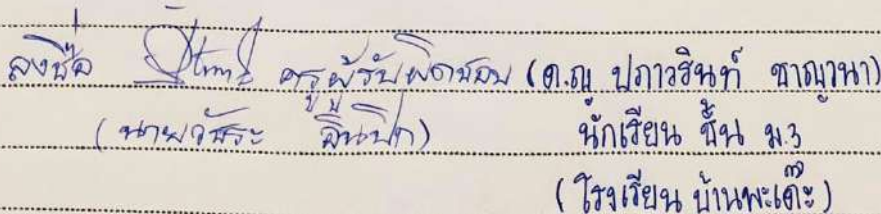 ลงชื่อ ครูผู้รับผิดชอบ (ด.ญ ปภาวรินท์ ชาญวนา)
(นายวัชระ อินปัก) นักเรียน ชั้น ม.3
(โรงเรียน บ้านพะเด๊ะ)